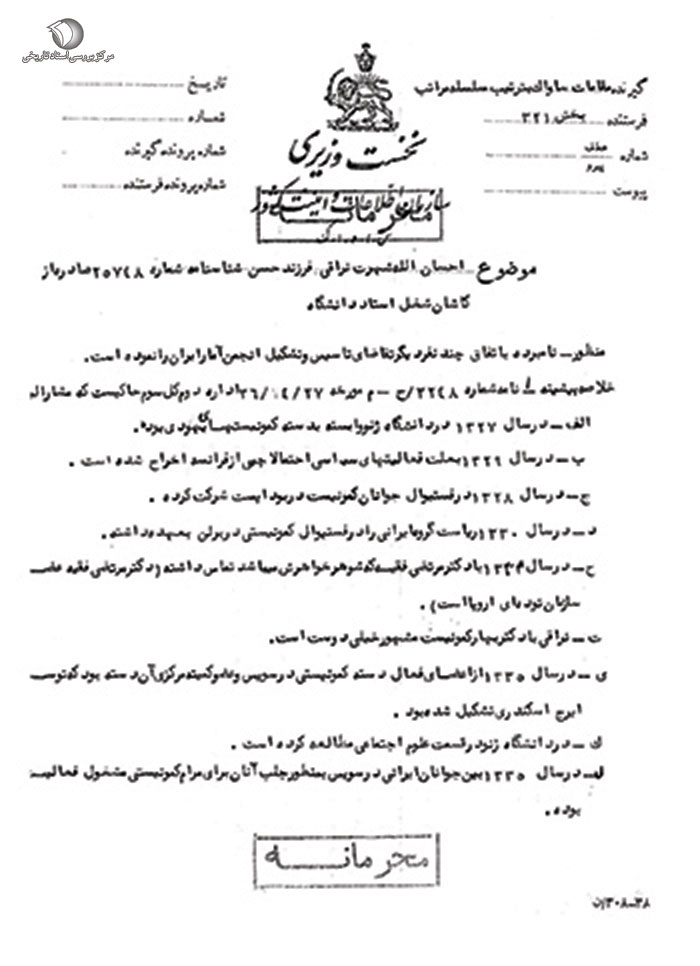 مرکز بررسی اسناد تاریخی
گیرنده مقامات ساواک بترتیب سلسله مراتب
فرستنده بخش ۳۲۱
شماره
پیوست
نخست وزیری
سازمان اطلاعات و امنیت کشور
س.ا.و.ا.ک
تاریخ
شماره
شماره پرونده گیرنده
شماره پرونده فرستنده
موضوع احسان الله شهرت نراقی فرزند حسن شناسنامه شماره ۲۵۷۴۸ صادره از
کاشان شغل استاد دانشگاه
منظور ــ نامبرده با تفاق چند نفر دیگر تقاضای تاسیس و تشکیل انجمن آمار ایران را نموده است.
خلاصه پیشینه نامه شماره ۲۲۴۸/ح ــ م مورخه ۲۶/۰۴/۲۷ اداره دوم کل سوم حاکیست که مشارالیه
الف ــ در سال ۱۳۲۷ در دانشگاه ژنو وابسته بدسته کمونیستهای یهودی بوده.
ب ــ در سال ۱۳۲۹ بعلت فعالیتهای سیاسی احتمالا چپی از فرانسه اخراج شده است.
ج ــ در سال ۱۳۲۸ در فستیوال جوانان کمونیست در بوداپست شرکت کرده.
د ــ در سال ۱۳۳۰ ریاست گروه ایرانی را در فستیوال کمونیستی در برلن بعهده داشته.
ح ــ در سال با دکتر مرتضی فقیه که شوهر خواهرش میباشد تماس داشته (دکتر مرتضی فقیه عضو
سازمان توده ای اروپا است).
ت ــ نراقی با دکتر بهار کمونیست مشهور خیلی دوست است.
ی ــ در سال ۱۳۳۵ از اعضای فعال دسته کمونیستی در سویس و عضو کمیته مرکزی آن دسته بود که توسط
ایرج اسکندری تشکیل شده بود.
ک ــ در دانشگاه ژنو در قسمت علوم اجتماعی مطالعه کرده است.
ل ــ در سال ۱۳۳۵ بین جوانان ایرانی در سویس بمنظور جلب آنان برای مرام کمونیستی مشغول فعالیت
بوده.
محرمانه
۳۸ــ۳۰۸/ن